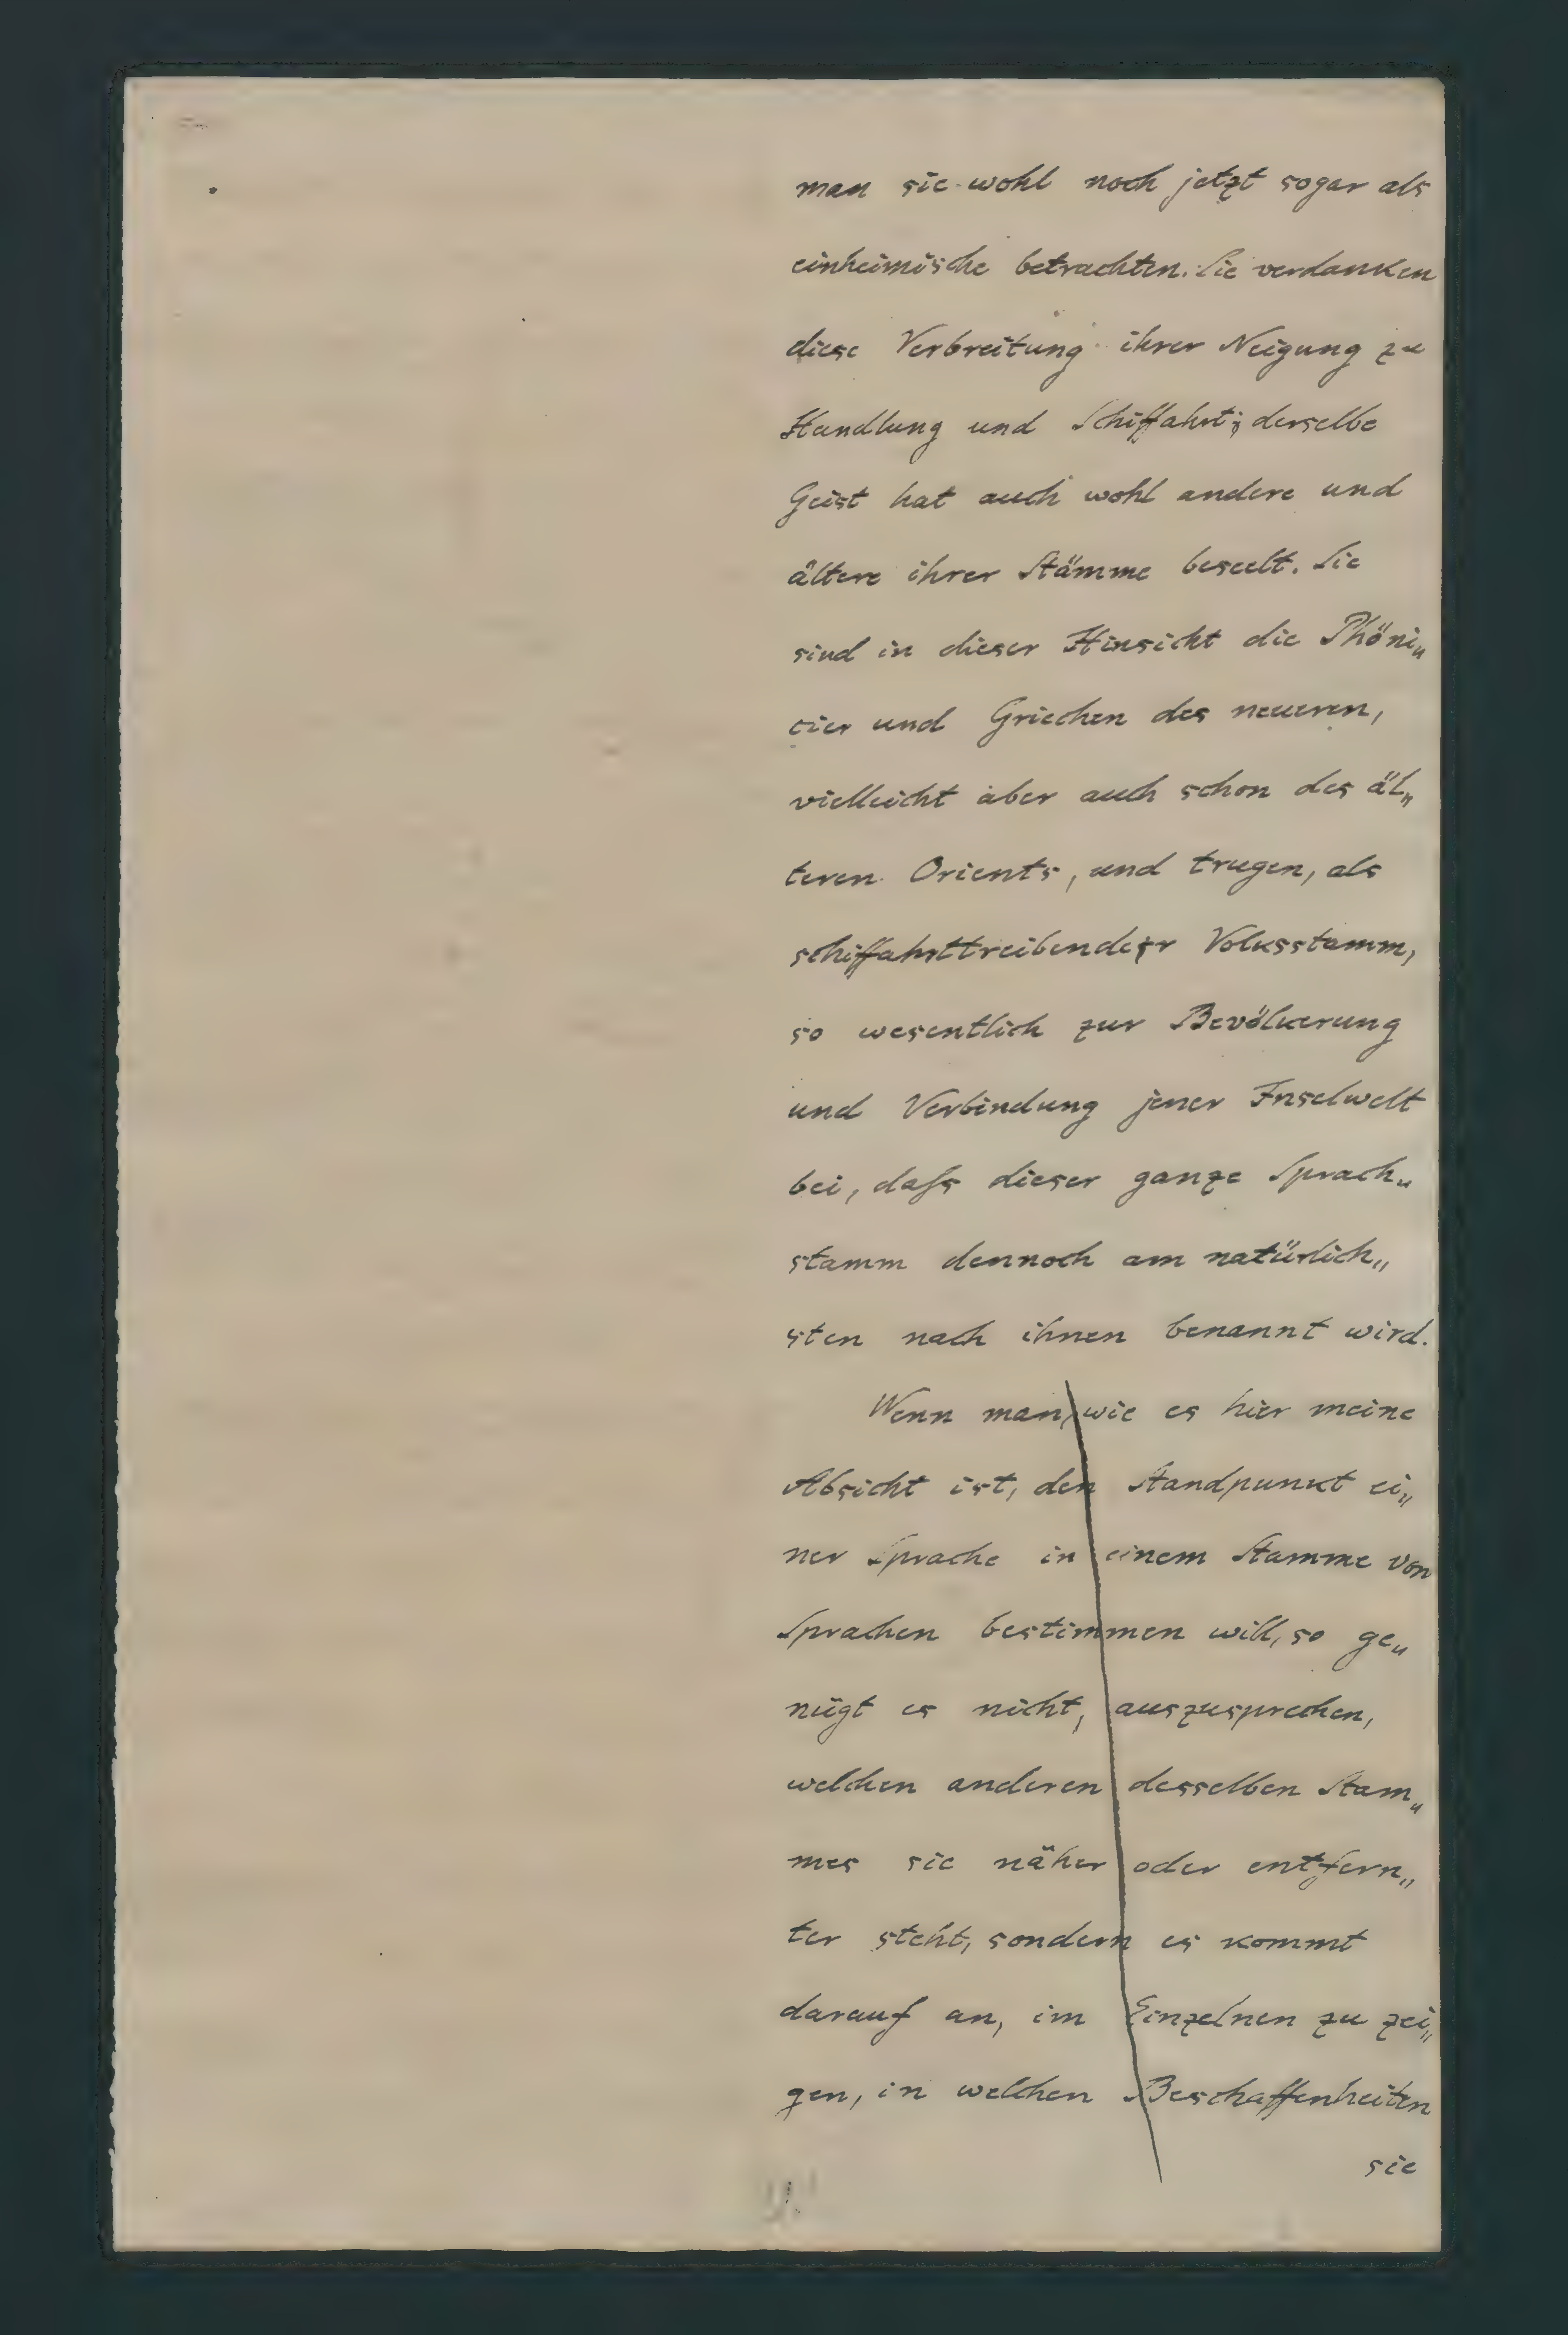 man sie wohl noch jetzt sogar als
einheimische betrachten. Sie verdanken
diese Verbreitung ihrer Neigung zu
Handlung und Schiffahrt; derselbe
Geist hat auch wohl andere und
ältere ihrer Stämme beseelt. Sie
sind in dieser Hinsicht die Phöni„
cier und Griechen des neueren,
vielleicht aber auch schon des äl„
teren Orients, und trugen, als
schiffahrttreibender Volksstamm,
so wesentlich zur Bevölkerung
und Verbindung jener Inselwelt
bei, daſs dieser ganze Sprach„
stamm dennoch am natürlich„
sten nach ihnen benannt wird.
Wenn man, wie es hier meine
Absicht ist, den Standpunkt ei„
ner Sprache in einem Stamme von
Sprachen bestimmen will, so ge„
nügt es nicht, auszusprechen,
welchen anderen desselben Stam„
mes sie näher oder entfern„
ter steht, sondern es kommt
darauf an, im Einzelnen zu zei„
gen, in welchen Beschaffenheiten
sie